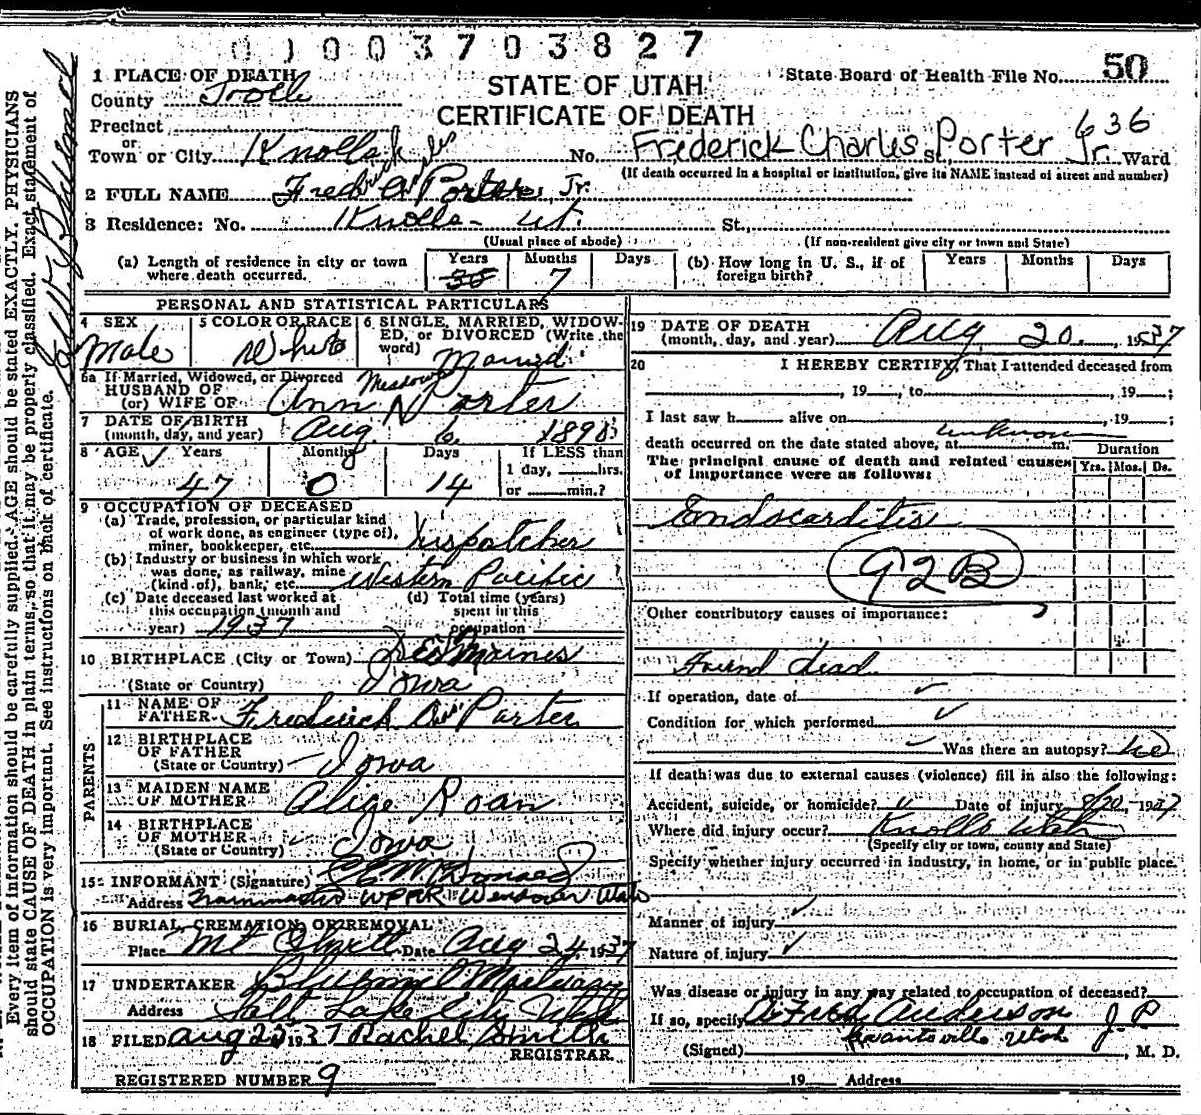 0 1 0 0 3 7 0 3 8 2 7
STATE OF UTAH
CERTIFICATE OF DEATH
State Board of Health File No. 50
1 PLACE OF DEATH
County Trolle
Precinct
or
Town or City Knolls No. Frederick Charles St. Porter Jr. Ward
636
(If death occurred in a hospital or institution, give its NAME instead of street and number)
2 FULL NAME Fred Porter, Jr.
3 Residence: No. Knolls - Ut. St.,
(Usual place of abode) (If non-resident give city or town and State)
(a) Length of residence in city or town where death occurred. Years 38 Months 7 Days
(b) How long in U. S., if of foreign birth? Years Months Days
PERSONAL AND STATISTICAL PARTICULARS
4 SEX Male
5 COLOR OR RACE White
6 SINGLE, MARRIED, WIDOWED, or DIVORCED (Write the word) Married
6a If Married, Widowed, or Divorced
HUSBAND OF
(or) WIFE OF Ann N Porter
7 DATE OF BIRTH
(month, day, and year) Aug 6 1890
8 AGE Years 47 Months 0 Days 14
If LESS than
1 day, hrs.
or min.?
9 OCCUPATION OF DECEASED
(a) Trade, profession, or particular kind
of work done, as engineer (type of),
miner, bookkeeper, etc. Dispatcher
(b) Industry or business in which work
was done, as railway, mine
(kind of), bank, etc. Western Pacific
(c) Date deceased last worked at
this occupation (month and
year) 1937
(d) Total time (years)
spent in this
occupation
10 BIRTHPLACE (City or Town) Des Moines
(State or Country) Iowa
PARENTS
11 NAME OF
FATHER Frederick Porter
12 BIRTHPLACE
OF FATHER
(State or Country) Iowa
13 MAIDEN NAME
OF MOTHER Alige Roan
14 BIRTHPLACE
OF MOTHER
(State or Country) Iowa
15 INFORMANT (Signature) C E McDonald
Address Trainmaster WPRR Wendover Utah
16 BURIAL, CREMATION, OR REMOVAL
Place Mt Olivett Date Aug 24, 1937
17 UNDERTAKER Mortuary
Address Salt Lake City Utah
18 FILED Aug 25 1937 Rachel Smith
REGISTRAR
REGISTERED NUMBER 9
19 DATE OF DEATH
(month, day, and year) Aug 20, 1937
20 I HEREBY CERTIFY, That I attended deceased from
, 19 , to , 19 ;
I last saw h alive on , 19 ;
death occurred on the date stated above, at unknown m.
The principal cause of death and related causes
of importance were as follows:
Duration
Yrs. Mos. Ds.
Endocarditis
92B
Other contributory causes of importance:
Found dead
If operation, date of
Condition for which performed
Was there an autopsy? No
If death was due to external causes (violence) fill in also the following:
Accident, suicide, or homicide? Date of injury 8/20-1937
Where did injury occur? Knolls Utah
(Specify city or town, county and State)
Specify whether injury occurred in industry, in home, or in public place.
Manner of injury
Nature of injury
Was disease or injury in any way related to occupation of deceased?
If so, specify Anderson J P
(Signed) Grantsville Utah, M. D.
19 Address
Every item of information should be carefully supplied. AGE should be stated EXACTLY. PHYSICIANS
should state CAUSE OF DEATH in plain terms, so that it may be properly classified. Exact statement of
OCCUPATION is very important. See instructions on back of certificate.